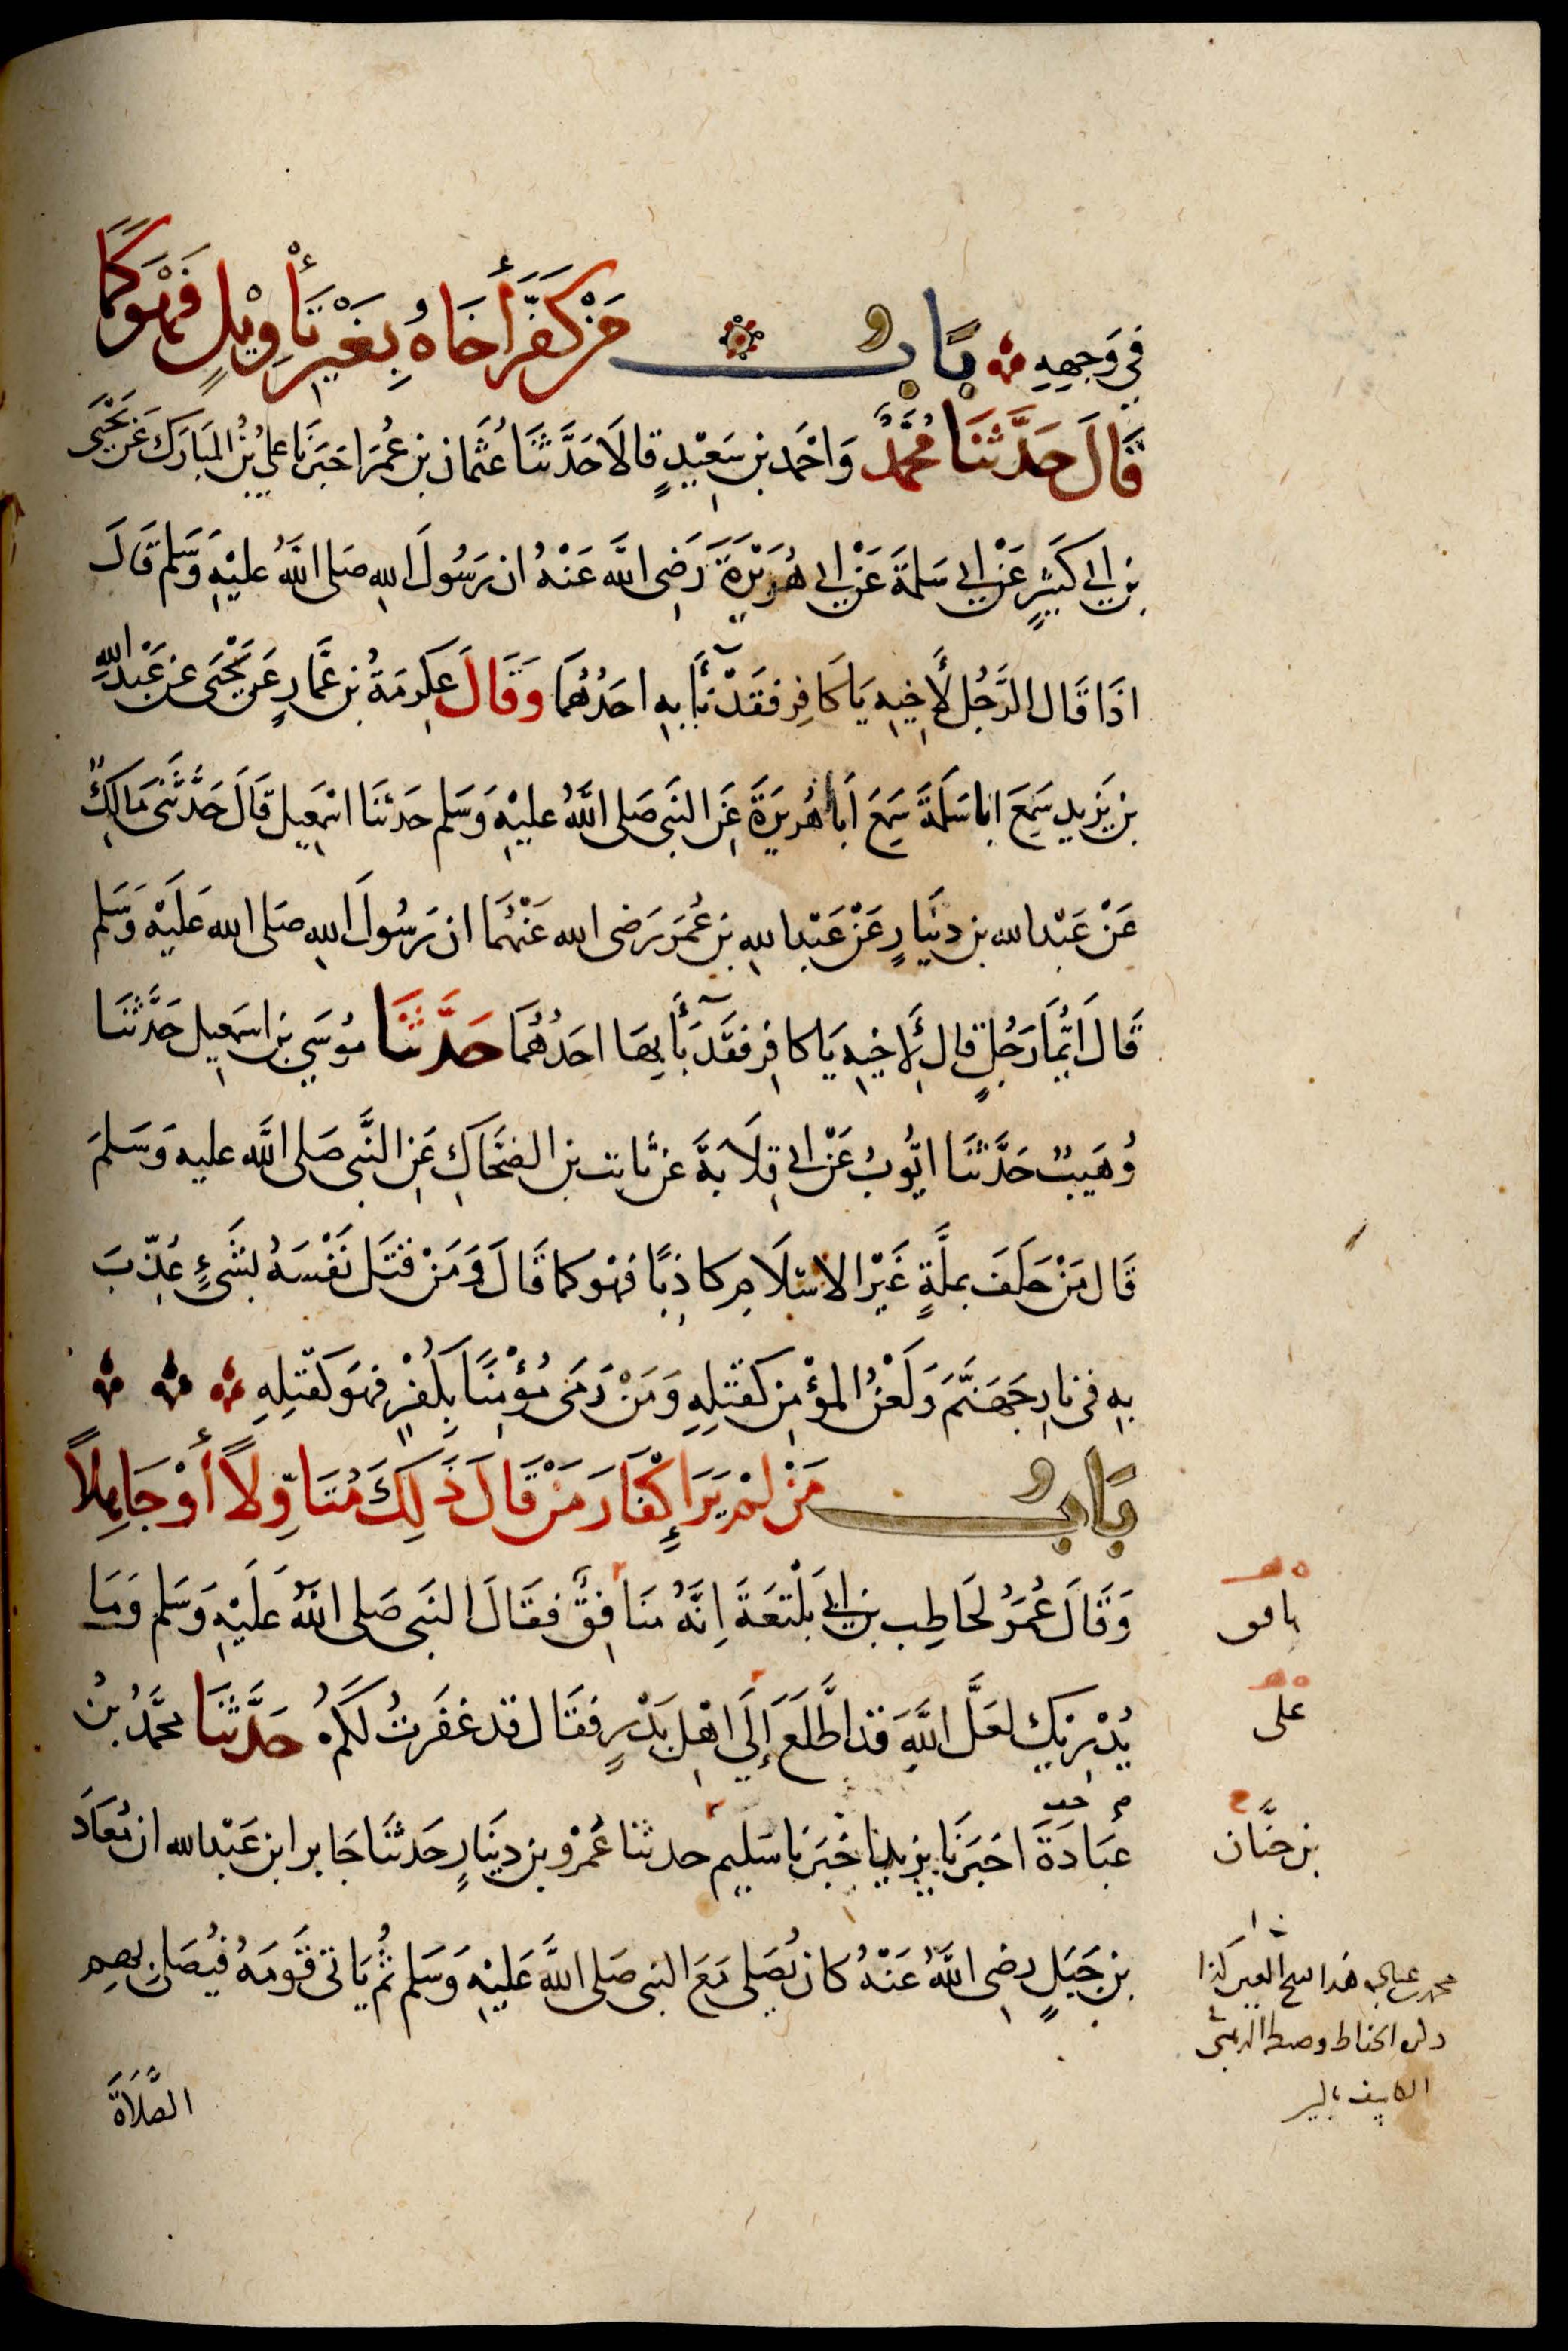 في وَجهِهِ بَابُ مَنْ كَفَّرَ أَخَاهُ بِغَيْرِ تَأْوِيْلٍ فَهْوَ كَمَا
قَالَ حَدَّثَنَا مُحَمَّدٌ وَاحْمَد بن سَعِيْدٍ قالَا حَدَّثَنَا عُثْمَان بن عُمَرَ اخبَرَنَا عليُّ بْنُ المبَارَكِ عَن يَحْيَى
بن ابي كَثِيْرٍ عَنْ ابي سَلمَةَ عَنْ ابي هُرَيْرَةَ رَضِي اللَّه عَنْهُ ان رَسُولَ اللهِ صَلى اللَّهُ عليْهِ وَسَلم قَالَ
اذَا قَال الرَّجُل لأَخِيْهِ يَا كَافِر فقَدْ بَآءَ بِهِ احَدُهُمَا وَقَالَ عِكرمَةُ بن عَمَّارٍ عَن يَحْيَى عَن عَبْدِ اللهِ
بن يَزيد سَمِعَ ابا سَلَمَةَ سَمِعَ أَبَا هُريرَةَ عَنِ النَبي صَلى اللَّهُ عليْهِ وَسَلم حَدثنَا اسْمعِيل قَالَ حَدَّثَنِي مَالِكٌ
عَنْ عَبْد الله بن دِيْنَارٍ عَنْ عَبْد اللهِ بن عُمَرَ رَضى الله عَنْهُمَا ان رَسُولَ اللهِ صَلى الله عَلَيْهِ وَسَلم
قَالَ ايُّمَا رَجُلٍ قال لأَخِيْهِ يَا كافِر فقَدْ بَآءَ بِهَا احَدُهُمَا حَدَّثَنَا مُوسَى بن اسمَعِيل حَدَّثنَا
وُهَيبٌ حَدَّثَنَا ايُّوبُ عَنْ ابي قِلَابَةَ عَن ثَابت بن الضحَّاكِ عَنِ النَّبي صَلى اللَّه عليه وَسَلمَ
قَال مَنْ حَلَفَ بملَّةٍ غَيْر الاسْلَامِ كاذِبًا فهْوَ كما قَالَ وَمَنْ قتَل نَفْسَهُ بشَيءٍ عُذِّبَ
بِهِ في نارِ جَهَنَّمَ وَلَعْنُ المؤْمِنِ كَقَتْلِهِ وَمَنْ رَمَى مُؤْمِنًا بِكُفْرٍ فهْوَ كقَتْلِهِ
بَابُ مَنْ لمْ يَرَ إِكْفَارَ مَنْ قَالَ ذَلِكَ مُتَأَوِّلًا أَوْ جَاهِلًا
وَقَالَ عُمَرُ لحَاطِب بن ابي بَلْتَعَةَ اِنَّهُ مُنَافِقٌ فقَالَ النَبي صَلى اللَّهُ عَلَيْهِ وَسَلم وَمَا
يُدْرِيْكَ لعَلَّ اللَّهَ قَد اطَّلَعَ إِلَى اهْلِ بَدْرٍ فقَال قد غفَرتُ لكُمْ حَدَّثَنَا محمَّدُ بْنُ
عبَادَةَ اخبَرَنَا يزيد اخبَرَنا سَليم حدثنا عَمْرو بن دِيْنَارٍ حَدثنَا جَابر ابن عَبْد الله ان مُعَاذَ
بن جَبَلٍ رضِي اللَّهُ عَنْهُ كان يُصَلي مَعَ النبي صَلى اللَّهُ عَلَيْهِ وَسَلم ثُمَّ يَاتي قَوْمَهُ فيُصَلي بِهِم
الصَّلَاةَ
نافق
على
بن حَيَّان